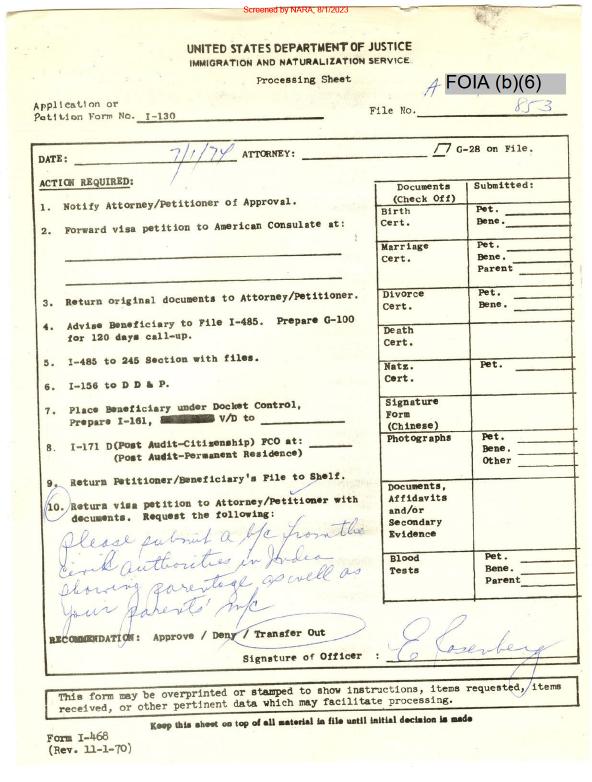 Screened by NARA, 8/1/2023
UNITED STATES DEPARTMENT OF JUSTICE
IMMIGRATION AND NATURALIZATION SERVICE
Processing Sheet
A FOIA (b)(6)
Application or
Petition Form No. I-130
File No. 853
DATE: 7/1/74 ATTORNEY: G-28 on File.
ACTION REQUIRED:
1. Notify Attorney/Petitioner of Approval.
2. Forward visa petition to American Consulate at:
3. Return original documents to Attorney/Petitioner.
4. Advise Beneficiary to File I-485. Prepare G-100
for 120 days call-up.
5. I-485 to 245 Section with files.
6. I-156 to D D & P.
7. Place Beneficiary under Docket Control,
Prepare I-161, V/D to
8. I-171 D(Post Audit-Citizenship) FCO at:
(Post Audit-Permanent Residence)
9. Return Petitioner/Beneficiary's File to Shelf.
10. Return visa petition to Attorney/Petitioner with
documents. Request the following:
Please submit a b/c from the
civil authorities in India
showing parentage as well as
your parents' m/c
Documents
(Check Off)
Submitted:
Birth
Cert.
Pet.
Bene.
Marriage
Cert.
Pet.
Bene.
Parent
Divorce
Cert.
Pet.
Bene.
Death
Cert.
Natz.
Cert.
Pet.
Signature
Form
(Chinese)
Photographs
Pet.
Bene.
Other
Documents,
Affidavits
and/or
Secondary
Evidence
Blood
Tests
Pet.
Bene.
Parent
RECOMMENDATION: Approve / Deny / Transfer Out
Signature of Officer : E Rosenberg
This form may be overprinted or stamped to show instructions, items requested, items
received, or other pertinent data which may facilitate processing.
Keep this sheet on top of all material in file until initial decision is made
Form I-468
(Rev. 11-1-70)